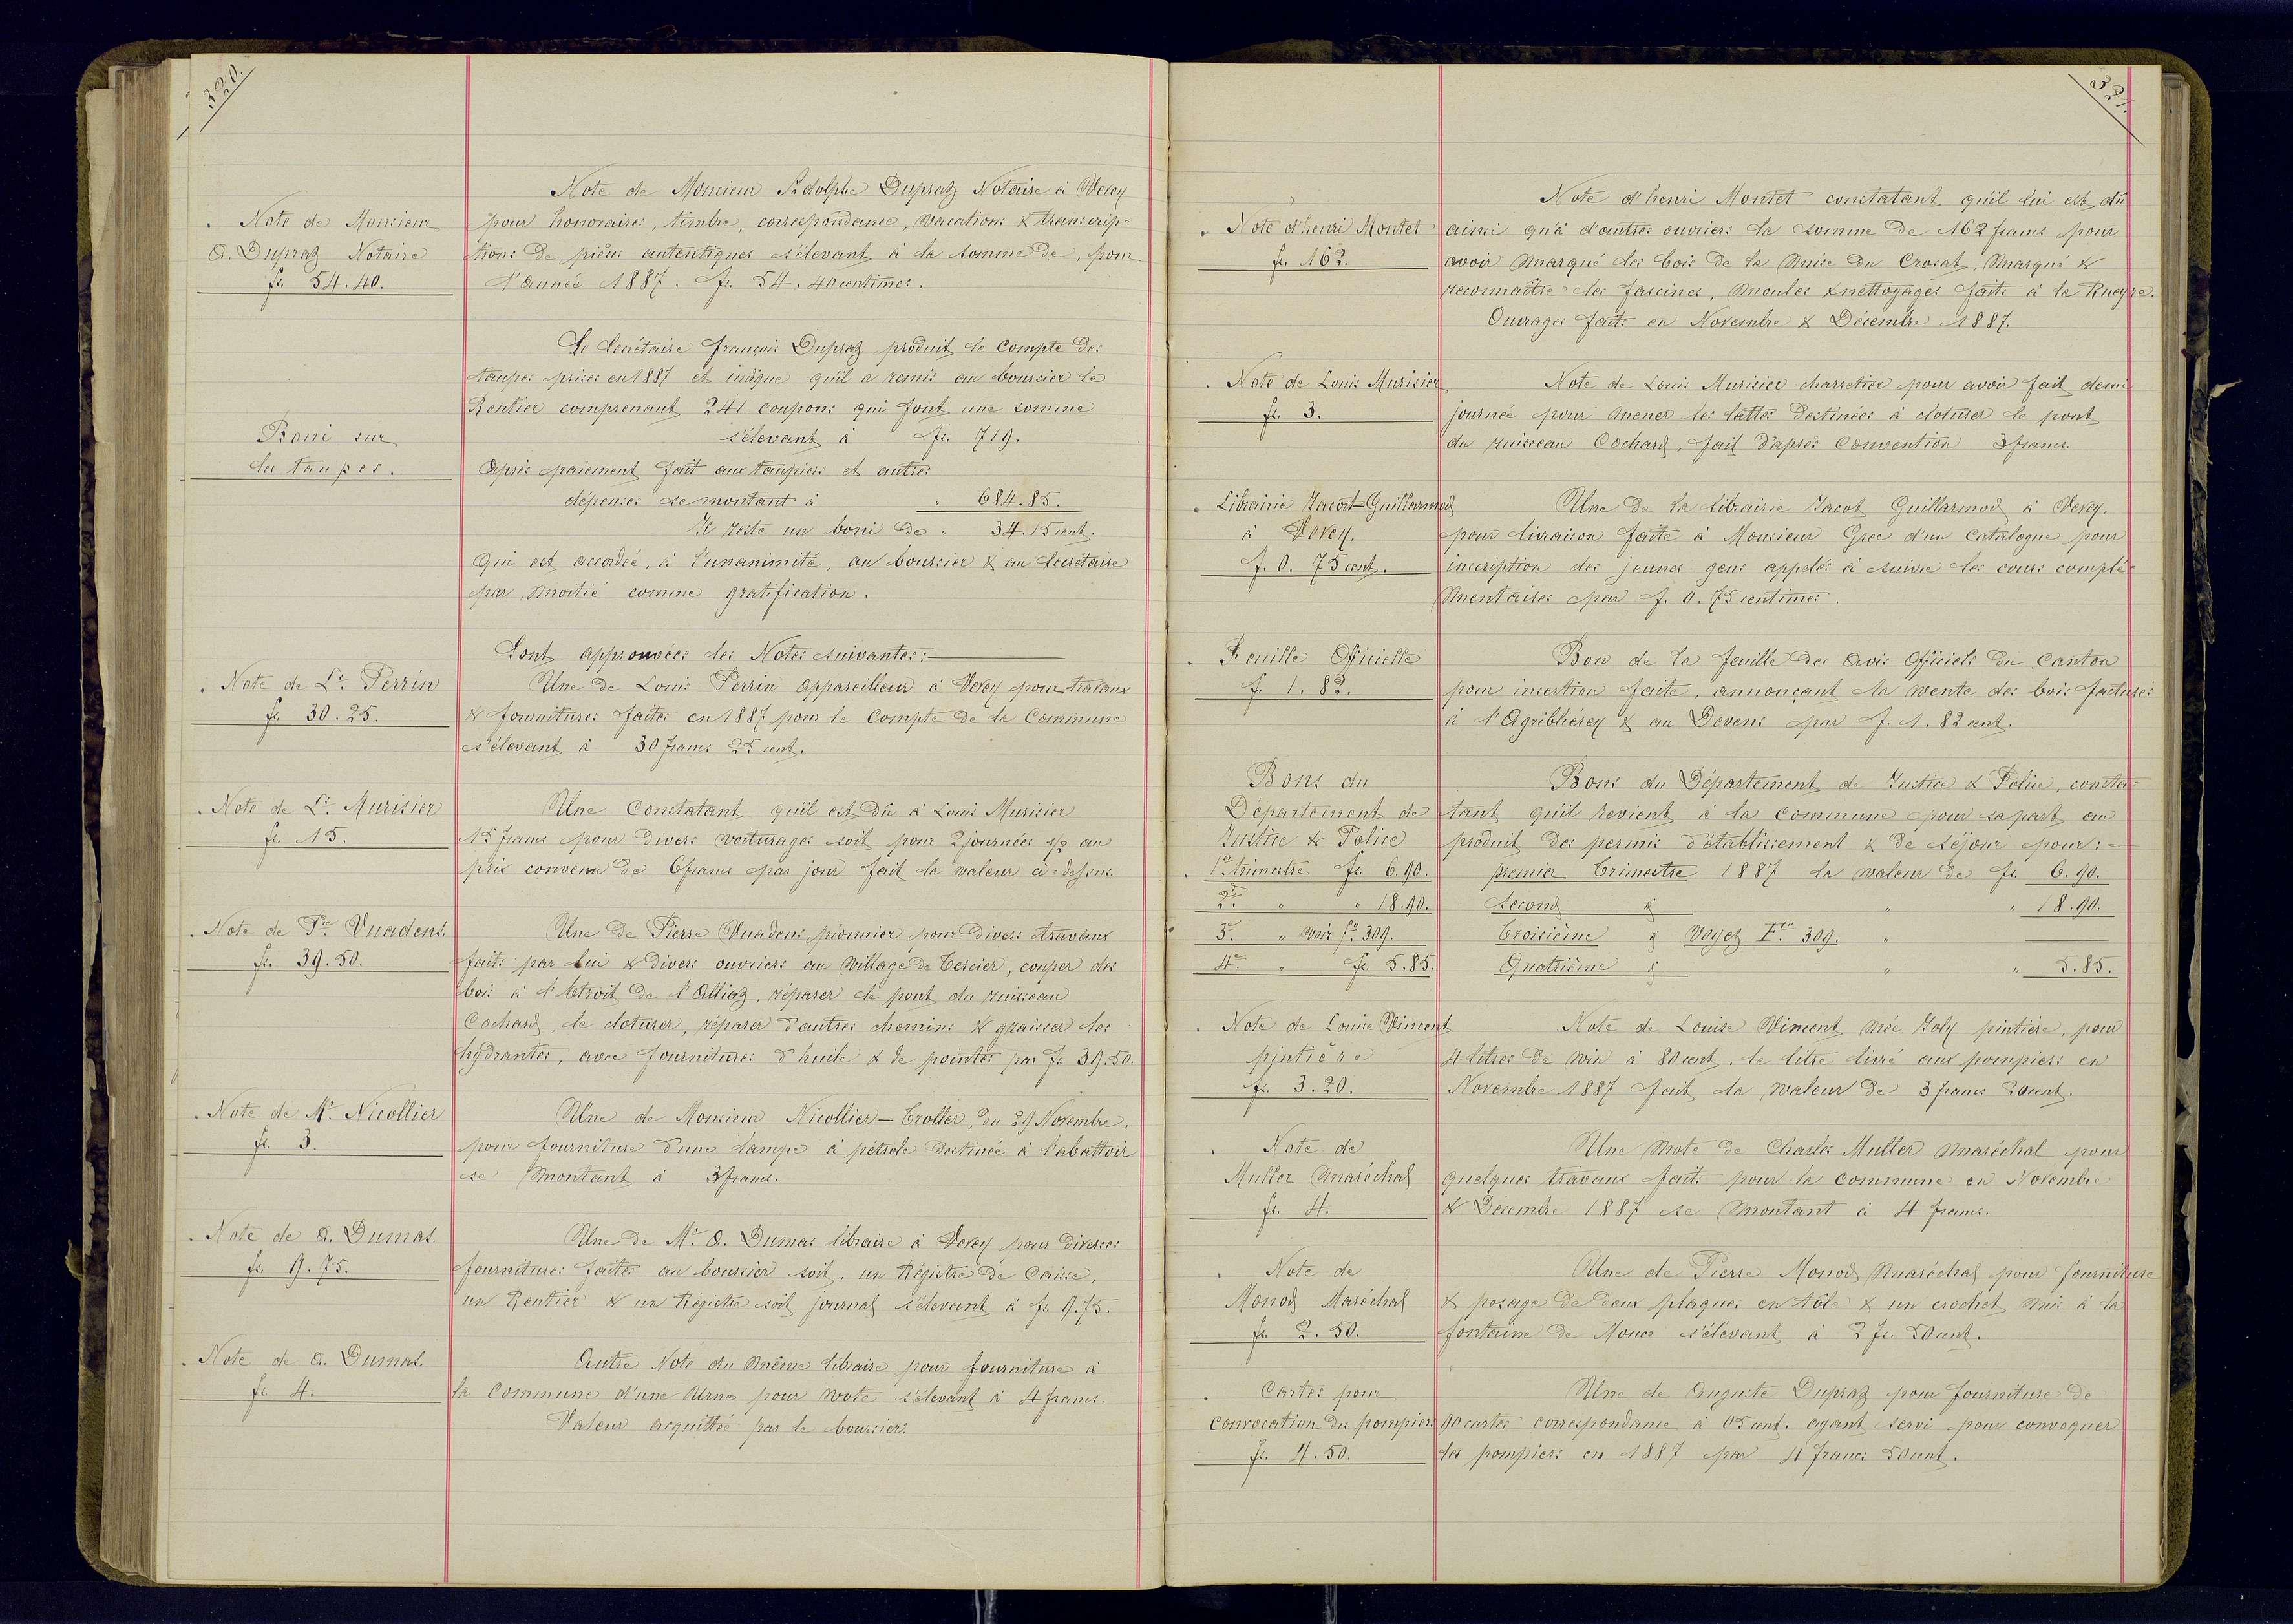 320.
Note de Monsieur
A. Dupraz Notaire
fr. 54.40.
Note de Monsieur Adolphe Dupraz Notaire à Vevey
pour honoraires, timbre, correspondance, vacations & transcrip=
tions de pièces autentiques s'élevant à la somme de, pour
l'année 1887. fr. 54.40 centimes.
Boni sur
les taupes.
Le Secrétaire françois Dupraz produit le compte des
taupes prises en 1887 et indique qu'il a remis au boursier le
Rentier comprenant 241 coupons qui font une somme
s'élevant à fr. 719.
Après paiement fait aux taupiers et autres
dépenses se montant à " 684.85.
Il reste un boni de " 34.15 cent.
Qui est accordée, à l'unanimité, au boursier & au Secrétaire
par moitié comme gratification.
Sont approuvées les Notes suivantes:
Note de Ls. Perrin
fr. 30.25.
Une de Louis Perrin appareilleur à Vevey pour travaux
& fournitures faites en 1887 pour le Compte de la Commune
s'élevant à 30 francs 25 cent.
Note de Ls. Murisier
fr. 15.
Une Constatant qu'il est dû à Louis Murisier
15 francs pour divers voiturages soit pour 2 journées 1/2 au
prix convenu de 6 francs par jour fait la valeur ci-dessus.
Note de Pre. Vuadens.
fr. 39.50.
Une de Pierre Vuadens pionnier pour divers travaux
faits par lui & divers ouvriers au village de Tercier, couper des
bois à l'Etroit de l'Alliaz, réparer le pont du ruisseau
Cochard, le cloturer, réparer d'autres chemins & graisser les
hydrantes, avec fournitures d'huile & de pointes par fr. 39.50.
Note de Mr. Nicollier
fr. 3.
Une de Monsieur Nicollier-Troller, du 29 Novembre,
pour fourniture d'une lampe à pétrole destinée à l'abattoir
se montant à 3 francs.
Note de A. Dumas.
fr. 9.75.
Une de Mr. A. Dumas libraire à Vevey pour diverses
fournitures faites au boursier soit, un Régistre de Caisse,
un Rentier & un Régistre soit journal s'élevant à fr. 9.75.
Note de A. Dumas.
fr. 4.
Autre Note du même libraire pour fourniture à
la Commune d'une Urne pour vote s'élevant à 4 francs.
Valeur acquittée par le boursier.
321.
Note d'henri Montet
fr. 162.
Note d'henri Montet constatant qu'il lui est dû
ainsi qu'à d'autres ouvriers la somme de 162 francs pour
avoir marqué les bois de la mise du Crosat, marqué &
reconnaître les fascines, moules & nettoyages faits à la Rueyre.
Ouvrages faits en Novembre & Décembre 1887.
Note de Louis Murisier
fr. 3.
Note de Louis Murisier charretier pour avoir fait demi
journée pour mener les lattes destinées à cloturer le pont
du ruisseau Cochard, fait d'après Convention 3 francs.
Librairie Jacot-Guillarmod
à Vevey.
f. 0.75 cent.
Une de la librairie Jacot Guillarmod à Vevey.
pour livraison faite à Monsieur Grec d'un Catalogue pour
inscription des jeunes gens appelés à suivre les cours complé=
mentaires par f. 0.75 centimes.
Feuille Officielle
f. 1.82.
Bon de la feuille des Avis Officiels du Canton
pour insertion faite, annonçant la vente des bois facturés
à l'Agriblierey & au Devens par f. 1.82 cent.
Bons du
Département de
Justice & Police
1er trimestre fr. 6.90.
2d. " " 18.90.
3e. " Voir fo. 309.
4e. " fr. 5.85.
Bons du Département de Justice & Police, consta=
tant qu'il revient à la commune pour sa part au
produit des permis d'établissement & de séjour pour:
premier Trimestre 1887 la valeur de fr. 6.90.
Second " " 18.90.
Troisième Voyez Fo. 309. "
Quatrième " " 5.85.
Note de Louise Vincent
pintière
fr. 3.20.
Note de Louise Vincent née Joly pintière, pour
4 litres de vin à 80 cent. le litre livré aux pompiers en
Novembre 1887 fait la valeur de 3 francs 20 cent.
Note de
Muller Maréchal
fr. 4.
Une note de Charles Muller maréchal pour
quelques travaux faits pour la commune en Novembre
& Décembre 1887 se montant à 4 francs.
Note de
Monod Maréchal
fr. 2.50.
Une de Pierre Monod Maréchal pour fourniture
& posage de deux plaques en tôle & un crochet mis à la
fontaine de s'élevant à 2 fr. 50 cent.
Cartes pour
convocation des pompiers
fr. 4.50.
Une de Auguste Dupraz pour fourniture de
90 cartes correspondance à 05 cent. ayant servi pour convoquer
les pompiers en 1887 par 4 francs 50 cent.